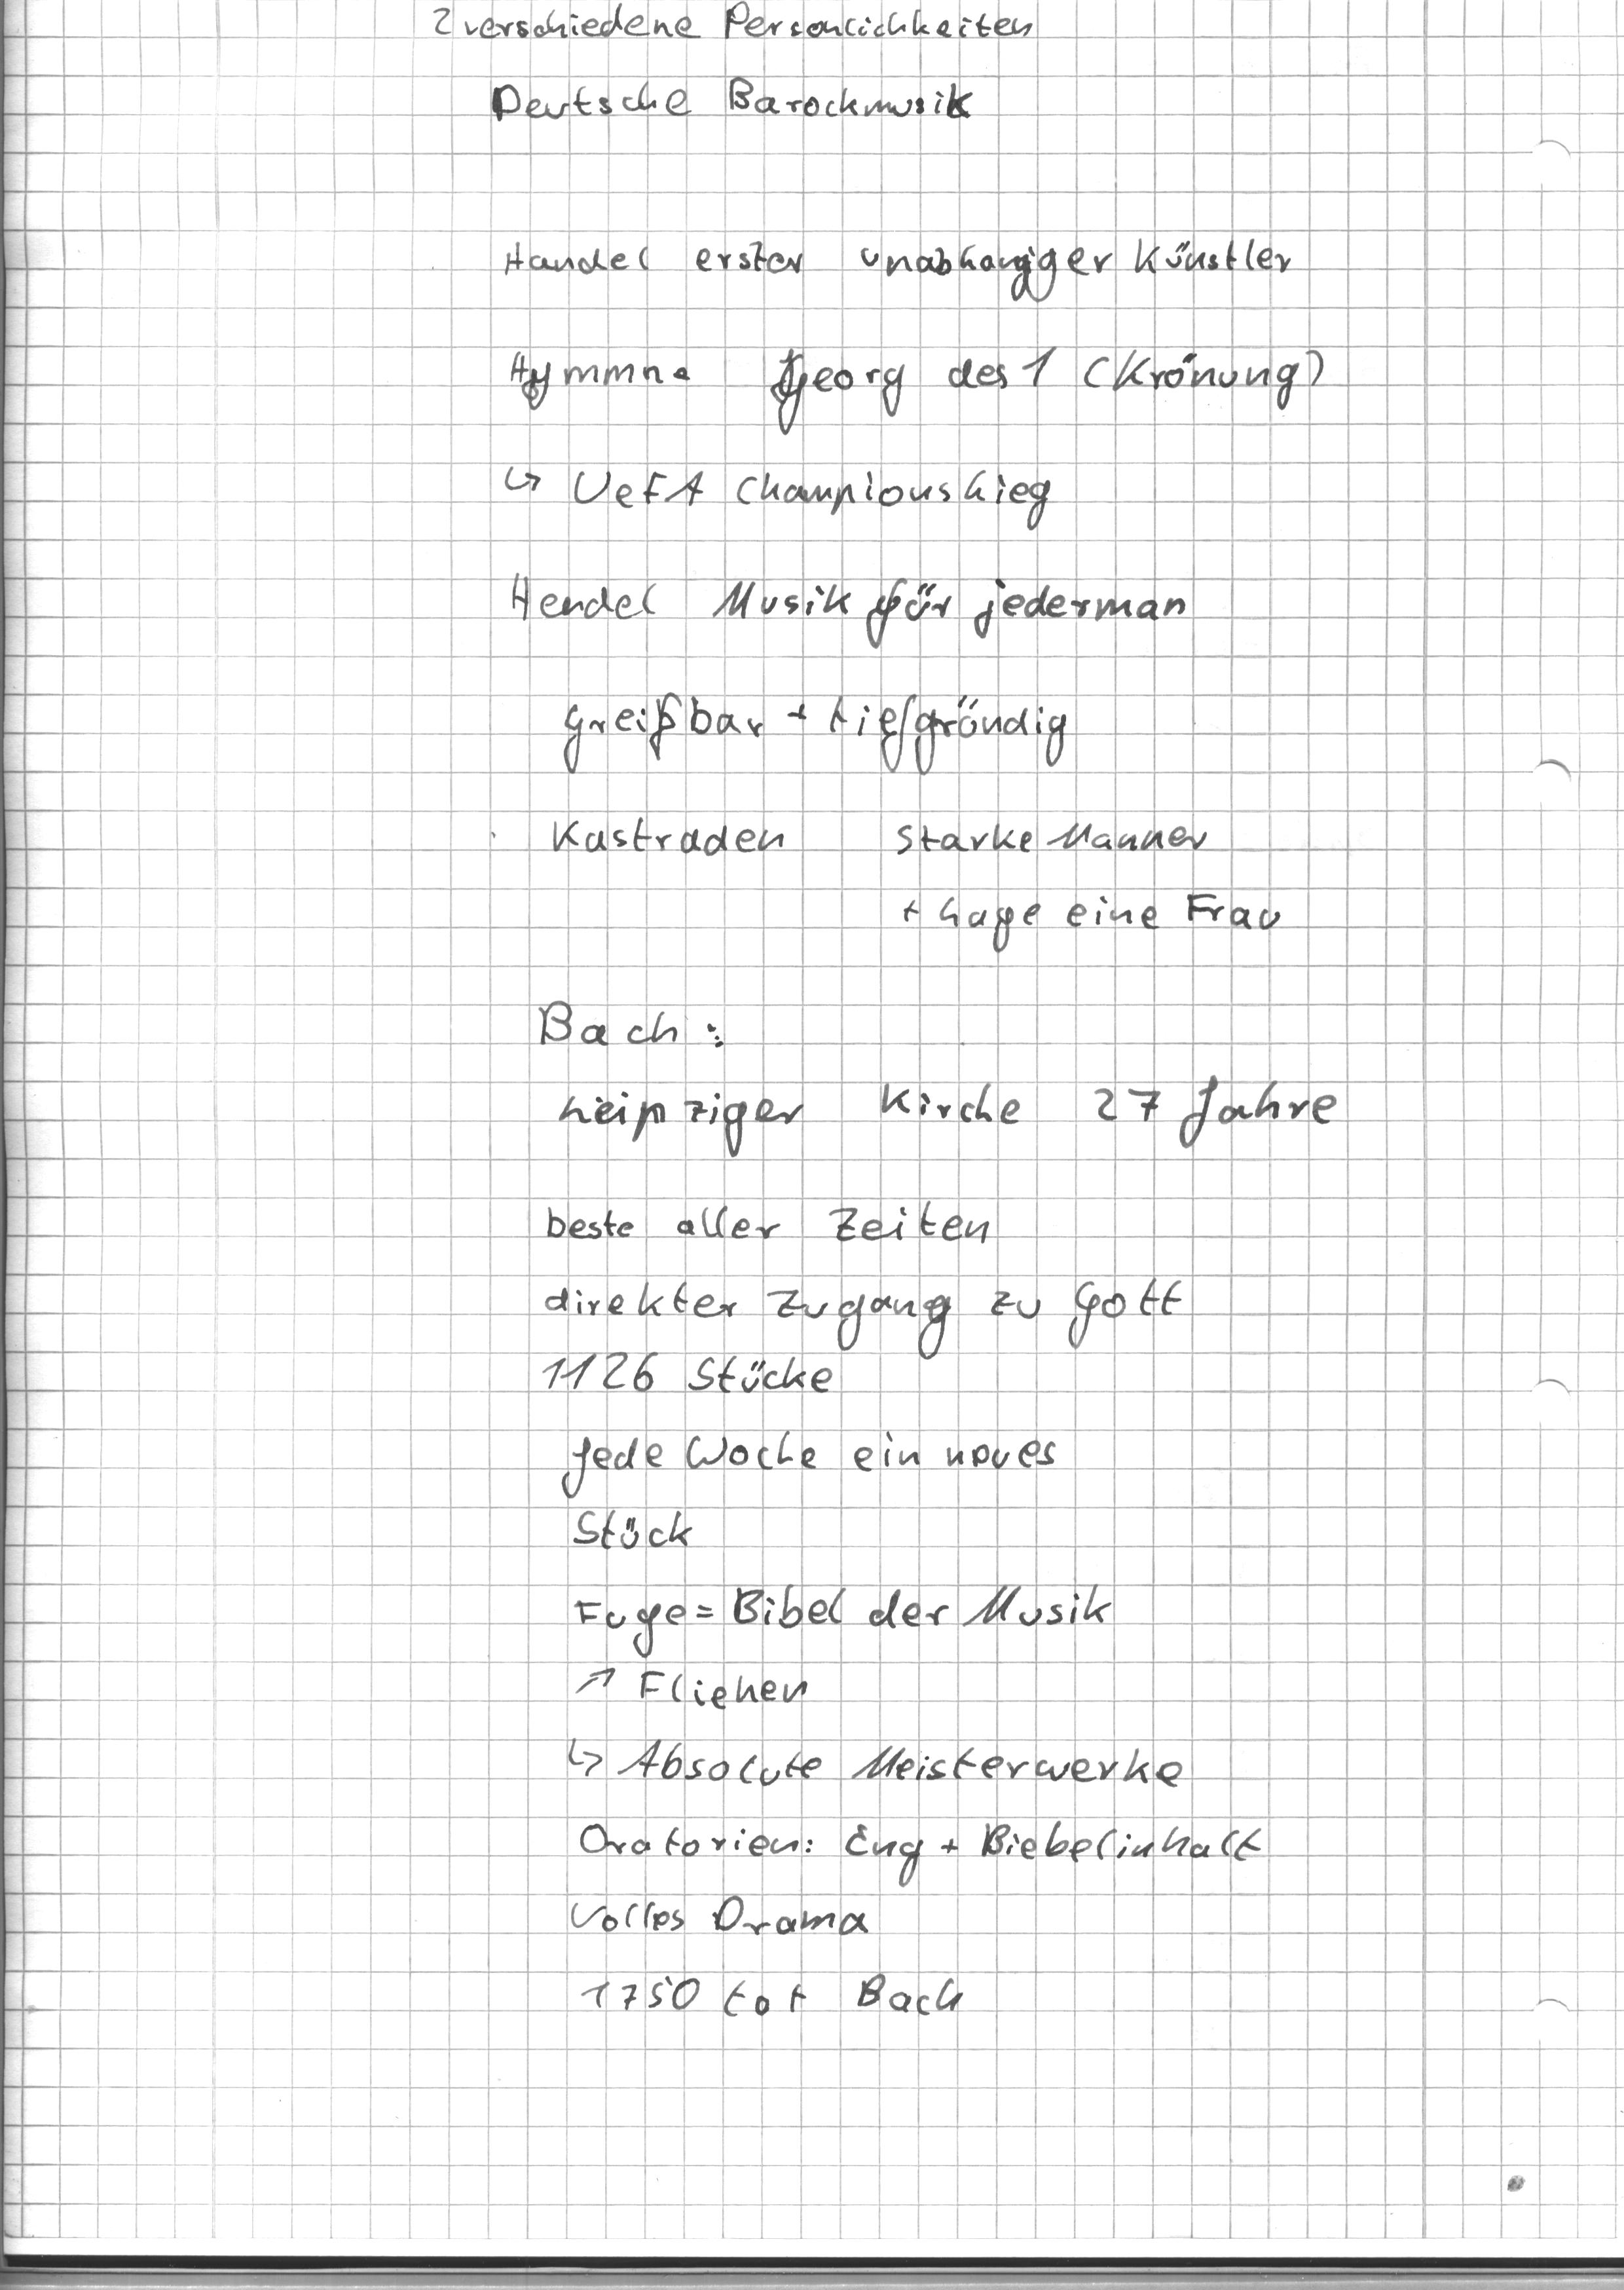 2 verschiedene Personlichkeiten
Deutsche Barockmusik
Handel erster unabhangiger Künstler
Hymmne Georg des 1 (Krönung)
↳ UEFA Championslieg
Hendel Musik für jederman
greifbar + tiefgründig
Kastraden starke Manner
+ Lage eine Frau
Bach:
Leipziger Kirche 27 Jahre
beste aller Zeiten
direkter Zugang zu Gott
1126 Stücke
Jede Woche ein neues
Stück
Fuge = Bibel der Musik
↗ Fliehen
↳ Absolute Meisterwerke
Oratorien: Eng + Biebelinhalt
Volles Drama
1750 tot Bach